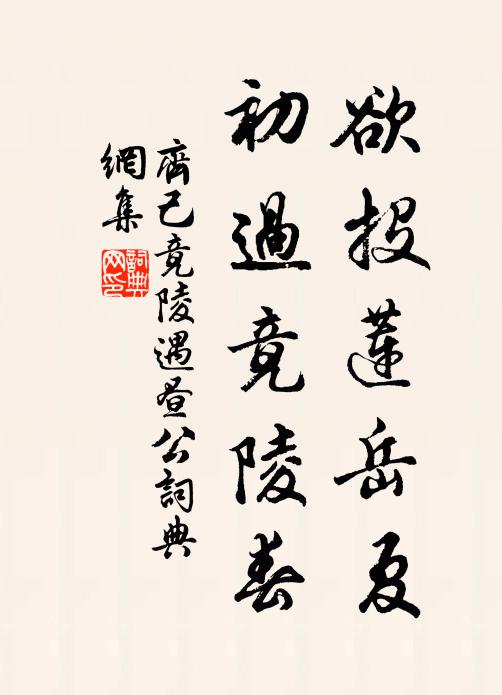 欲投蓮岳夏
初過竟陵春
齊己竟陵遇晝公詞典
網集
詞典网印